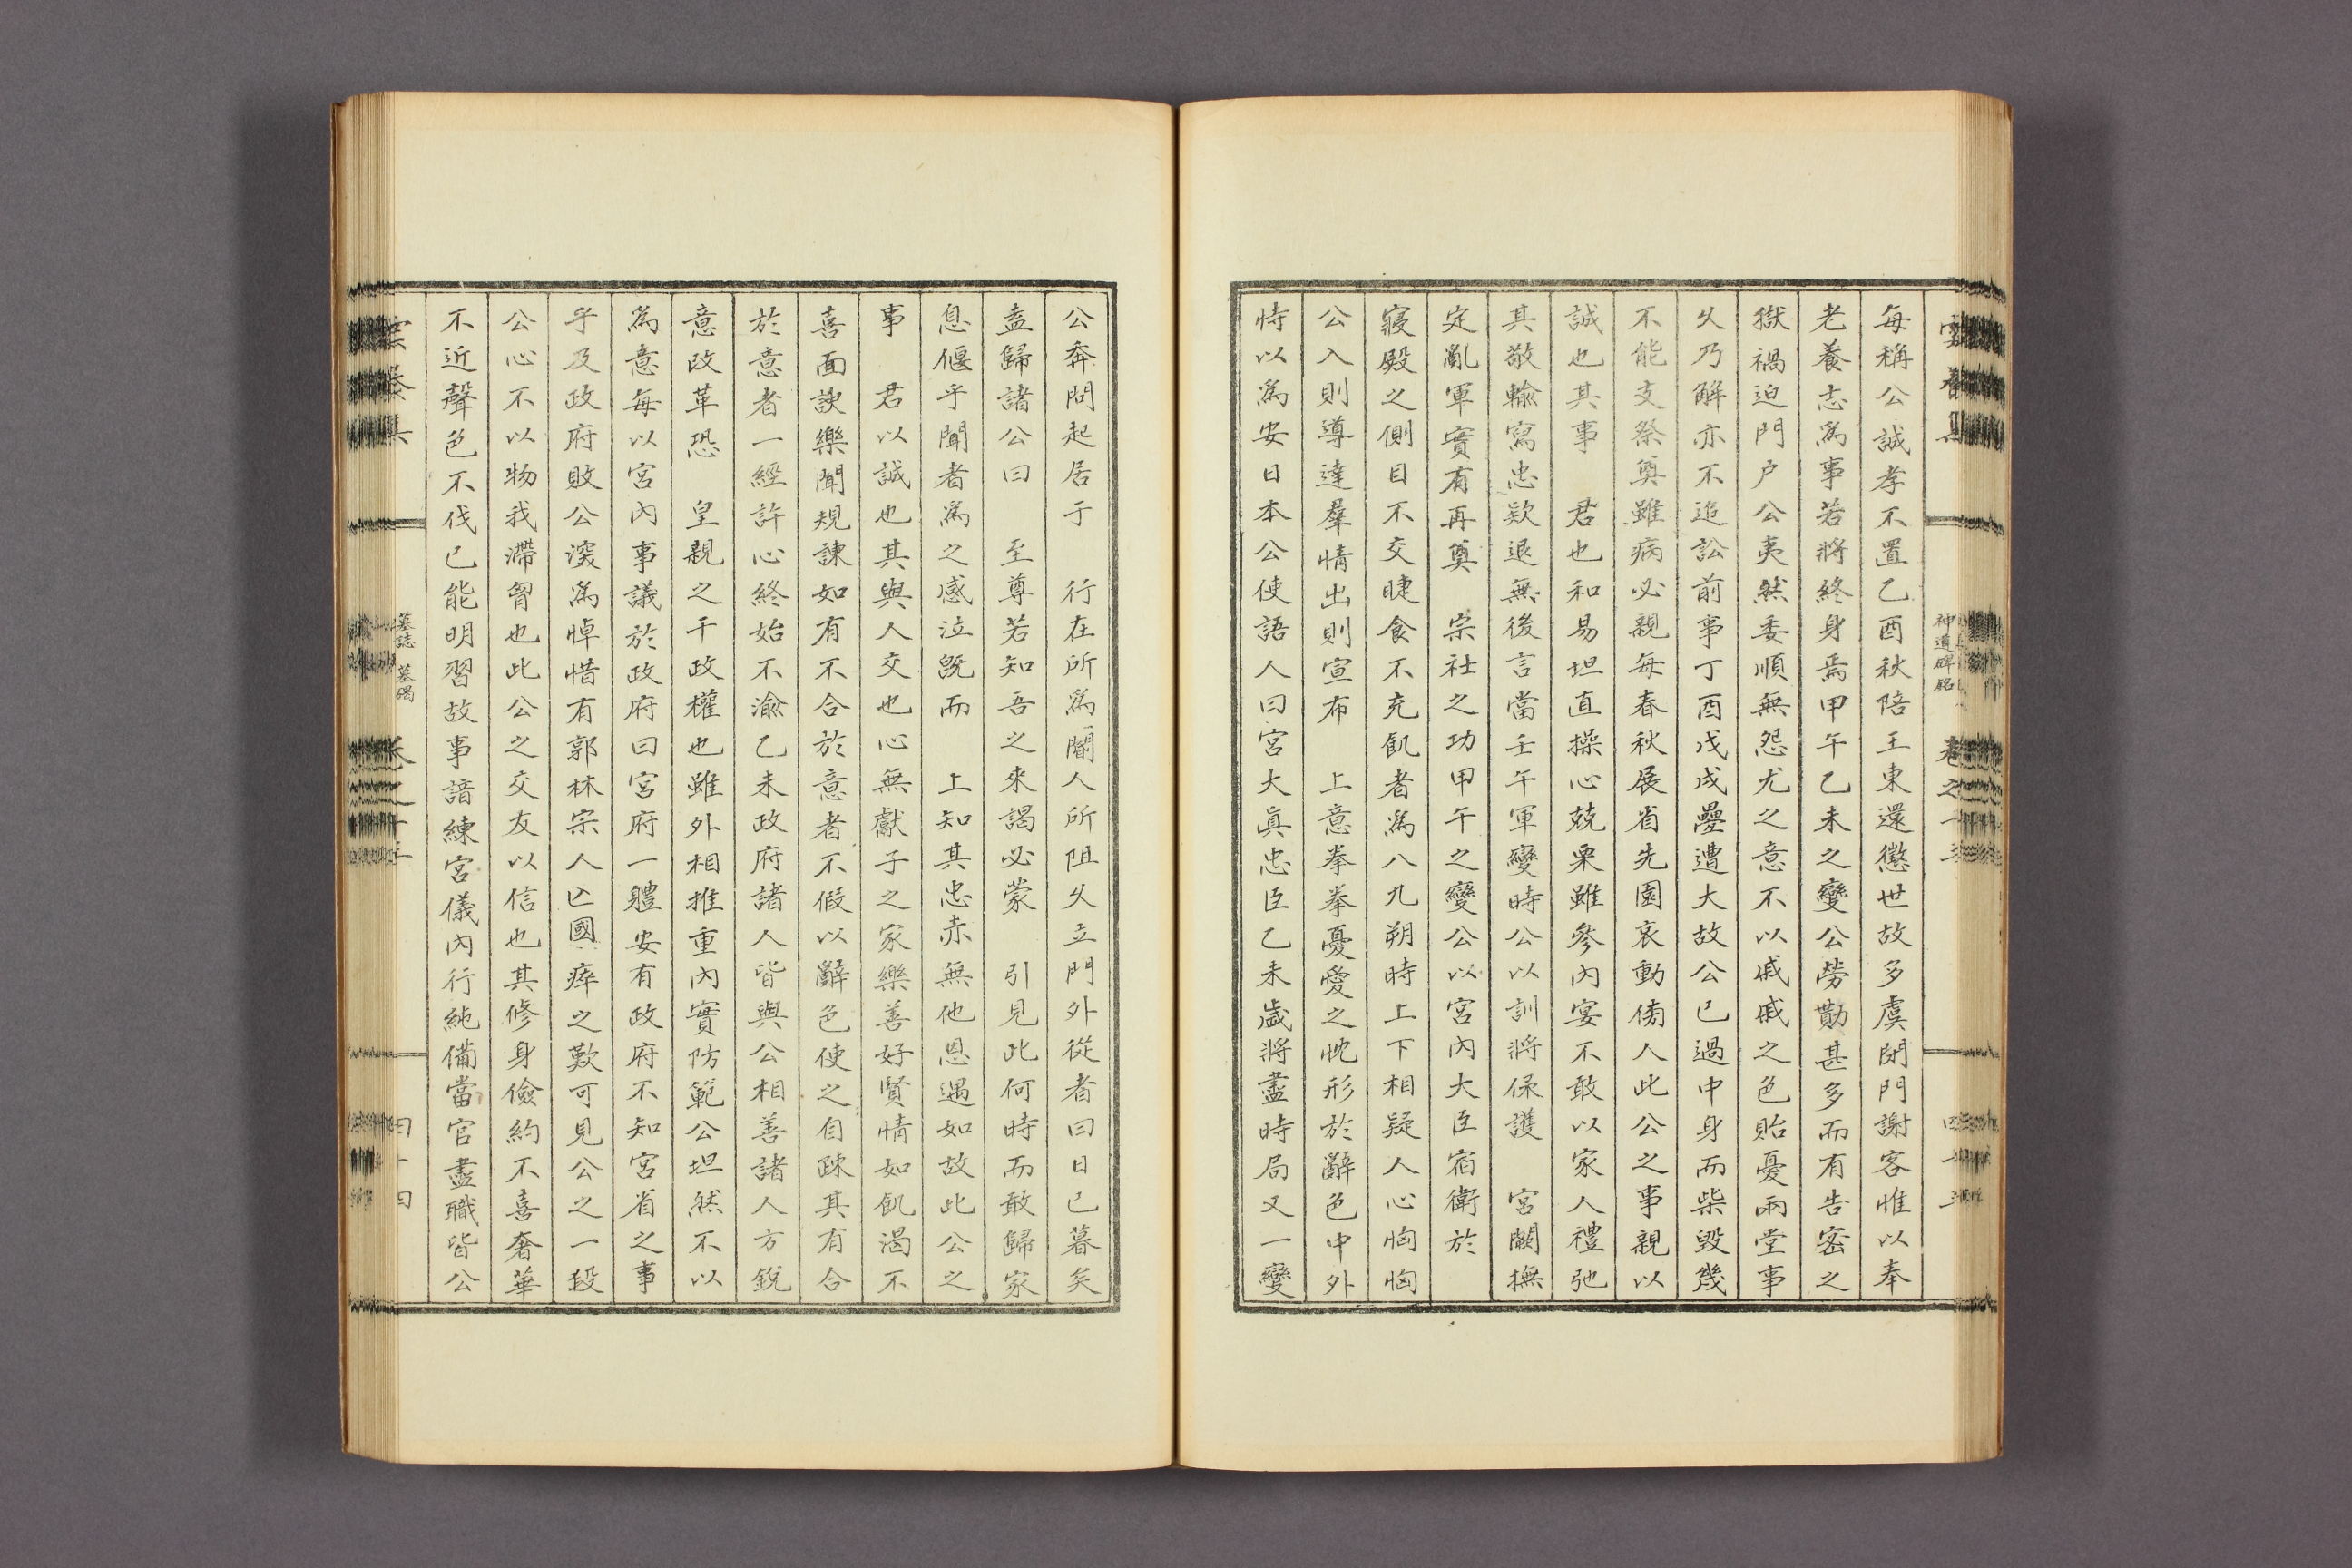 每稱公誠孝不置乙酉秋陪王東還懲世故多虞閉門謝客惟以奉
老養志爲事若將終身焉甲午乙未之變公勞勩甚多而有告密之
獄禍迫門戶公夷然委順無怨尤之意不以戚戚之色貽憂兩堂事
久乃解亦不追訟前事丁酉戊戌疊遭大故公已過中身而柴毀幾
不能支祭奠雖病必親每春秋展省先園哀動傍人此公之事親以
誠也其事　君也和易坦直操心兢栗雖參內宴不敢以家人禮弛
其敬輸寫忠欵退無後言當壬午軍變時公以訓將保護　宮闕撫
定亂軍實有再奠　宗社之功甲午之變公以宮內大臣宿衛於
寢殿之側目不交睫食不充飢者爲八九朔時上下相疑人心恟恟
公入則導達羣情出則宣布　上意拳拳憂愛之忱形於辭色中外
恃以爲安日本公使語人曰宮大眞忠臣乙未歲將盡時局又一變
神道碑銘
卷之十三
公奔問起居于　行在所爲閽人所阻久立門外從者曰日已暮矣
盍歸諸公曰　至尊若知吾之來謁必蒙　引見此何時而敢歸家
息偃乎聞者爲之感泣旣而　上知其忠赤無他恩遇如故此公之
事　君以誠也其與人交也心無獻子之家樂善好賢情如飢渴不
喜面諛樂聞規諫如有不合於意者不假以辭色使之自疎其有合
於意者一經許心終始不渝乙未政府諸人皆與公相善諸人方銳
意改革恐　皇親之干政權也雖外相推重內實防範公坦然不以
爲意每以宮內事議於政府曰宮府一軆安有政府不知宮省之事
乎及政府敗公深爲悼惜有郭林宗人亡國瘁之歎可見公之一段
公心不以物我滯胷也此公之交友以信也其修身儉約不喜奢華
不近聲色不伐已能明習故事諳練宮儀內行純備當官盡職皆公
墓誌　墓碣